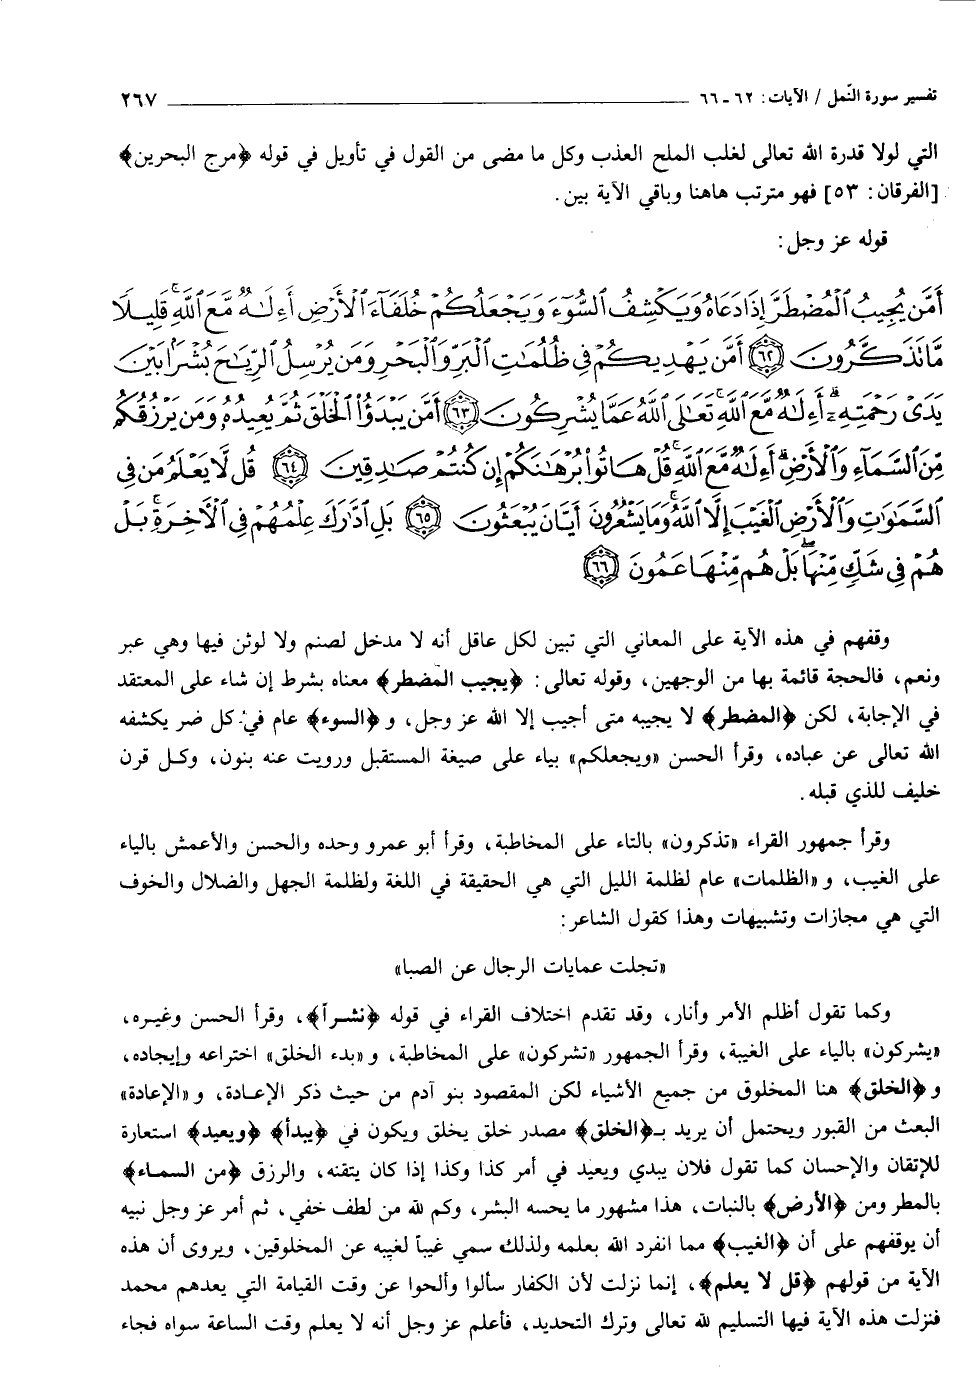 تفسير سورة النّمل / الآيات: ٦٢ - ٦٦ ٢٦٧
التي لولا قدرة الله تعالى لغلب الملح العذب وكل ما مضى من القول في تأويل في قوله ﴿مرج البحرين﴾
[الفرقان: ٥٣] فهو مترتب هاهنا وباقي الآية بين.
قوله عز وجل:
أَمَّن يُجِيبُ الْمُضْطَرَّ إِذَا دَعَاهُ وَيَكْشِفُ السُّوٓءَ وَيَجْعَلُكُمْ خُلَفَآءَ الْأَرْضِ أَءِلَٰهٌ مَّعَ اللَّهِ قَلِيلًا
مَّا تَذَكَّرُونَ ﴿٦٢﴾ أَمَّن يَهْدِيكُمْ فِي ظُلُمَٰتِ الْبَرِّ وَالْبَحْرِ وَمَن يُرْسِلُ الرِّيَٰحَ بُشْرًا بَيْنَ
يَدَىْ رَحْمَتِهِۦٓ أَءِلَٰهٌ مَّعَ اللَّهِ تَعَٰلَى اللَّهُ عَمَّا يُشْرِكُونَ ﴿٦٣﴾ أَمَّن يَبْدَؤُا الْخَلْقَ ثُمَّ يُعِيدُهُۥ وَمَن يَرْزُقُكُم
مِّنَ السَّمَآءِ وَالْأَرْضِ أَءِلَٰهٌ مَّعَ اللَّهِ قُلْ هَاتُوا بُرْهَٰنَكُمْ إِن كُنتُمْ صَٰدِقِينَ ﴿٦٤﴾ قُل لَّا يَعْلَمُ مَن فِي
السَّمَٰوَٰتِ وَالْأَرْضِ الْغَيْبَ إِلَّا اللَّهُ وَمَا يَشْعُرُونَ أَيَّانَ يُبْعَثُونَ ﴿٦٥﴾ بَلِ ادَّٰرَكَ عِلْمُهُمْ فِي الْأَخِرَةِ بَلْ
هُمْ فِي شَكٍّ مِّنْهَا بَلْ هُم مِّنْهَا عَمُونَ ﴿٦٦﴾
وقفهم في هذه الآية على المعاني التي تبين لكل عاقل أنه لا مدخل لصنم ولا لوثن فيها وهي عبر
ونعم، فالحجة قائمة بها من الوجهين، وقوله تعالى: ﴿يجيب المضطر﴾ معناه بشرط إن شاء على المعتقد
في الإجابة، لكن ﴿المضطر﴾ لا يجيبه متى أجيب إلا الله عز وجل، و ﴿السوء﴾ عام في كل ضر يكشفه
الله تعالى عن عباده، وقرأ الحسن «ويجعلكم» بياء على صيغة المستقبل ورويت عنه بنون، وكل قرن
خليف للذي قبله.
وقرأ جمهور القراء «تذكرون» بالتاء على المخاطبة، وقرأ أبو عمرو وحده والحسن والأعمش بالياء
على الغيب، و «الظلمات» عام لظلمة الليل التي هي الحقيقة في اللغة ولظلمة الجهل والضلال والخوف
التي هي مجازات وتشبيهات وهذا كقول الشاعر:
«تجلت عمايات الرجال عن الصبا»
وكما تقول أظلم الأمر وأنار، وقد تقدم اختلاف القراء في قوله ﴿نشراً﴾، وقرأ الحسن وغيره،
«يشركون» بالياء على الغيبة، وقرأ الجمهور «تشركون» على المخاطبة، و «بدء الخلق» اختراعه وإيجاده،
و ﴿الخلق﴾ هنا المخلوق من جميع الأشياء لكن المقصود بنو آدم من حيث ذكر الإعادة، و «الإعادة»
البعث من القبور ويحتمل أن يريد بـ﴿الخلق﴾ مصدر خلق يخلق ويكون في ﴿يبدأ﴾ ﴿ويعيد﴾ استعارة
للإتقان والإحسان كما تقول فلان يبدي ويعيد في أمر كذا وكذا إذا كان يتقنه، والرزق ﴿من السماء﴾
بالمطر ومن ﴿الأرض﴾ بالنبات، هذا مشهور ما يحسه البشر، وكم لله من لطف خفي، ثم أمر عز وجل نبيه
أن يوقفهم على أن ﴿الغيب﴾ مما انفرد الله بعلمه ولذلك سمي غيباً لغيبه عن المخلوقين، ويروى أن هذه
الآية من قولهم ﴿قل لا يعلم﴾، إنما نزلت لأن الكفار سألوا وألحوا عن وقت القيامة التي يعدهم محمد
فنزلت هذه الآية فيها التسليم لله تعالى وترك التحديد، فأعلم عز وجل أنه لا يعلم وقت الساعة سواه فجاء